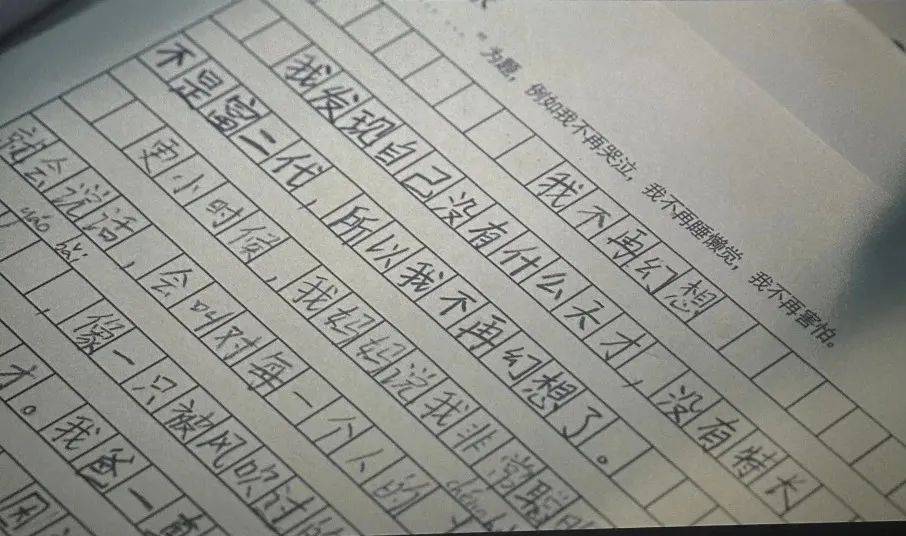 ”为题，例如我不再哭泣，我不再睡懒觉，我不再害怕。
我不再幻想
我发现自己没有什么天才，没有特长
不是富二代，所以我不再幻想了。
更小时候，我妈妈说我非常聪
就会说话，会叫对每一个人的
，像一只被风吹过的
才。我爸一直
困